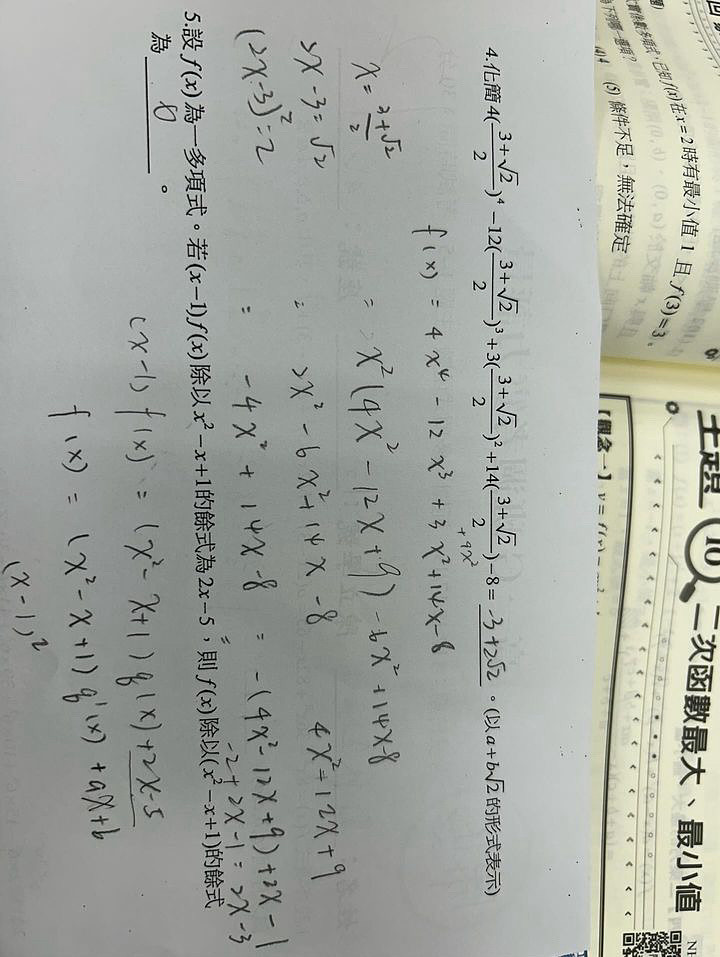 4.化簡4(\frac{3+\sqrt{2}}{2})^4-12(\frac{3+\sqrt{2}}{2})^3+3(\frac{3+\sqrt{2}}{2})^2+14(\frac{3+\sqrt{2}}{2})-8= -3+2√2 。(以a+b√2的形式表示)
x = \frac{3+√2}{2}
2x-3=√2
(2x-3)^2=2
f(x) = 4x^4 - 12x^3 + 3x^2 + 14x - 8
+9x^2
= x^2(4x^2 - 12x + 9) - 6x^2 + 14x - 8
= 2x^2 - 6x^2 + 14x - 8
4x^2 = 12x + 9
= -4x^2 + 14x - 8 = -(4x^2 - 12x + 9) + 2x - 1
= -2 + 2x - 1 = 2x - 3
5.設f(x)為一多項式。若(x-1)f(x)除以x^2-x+1的餘式為2x-5,則f(x)除以(x^2-x+1)的餘式
為 8 。
(x-1) f(x) = (x^2 - x + 1) q(x) + 2x - 5
f(x) = (x^2 - x + 1) q'(x) + ax + b
(x-1)^2
已知f(x)在x=2時有最小值1且f(3)=3,
(5) 條件不足,無法確定
主題 10 二次函數最大、最小值
【觀念一】